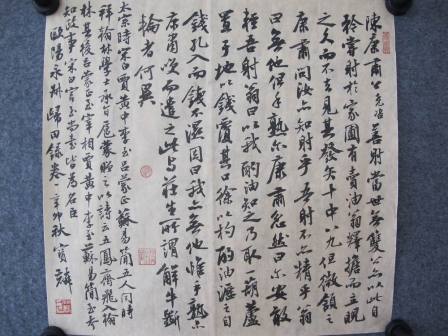 陳康肅公堯咨善射當世無雙公亦以此自
矜嘗射於家圃有賣油翁釋擔而立睨
之久而不去見其發矢十中八九但微頷之
康肅問汝亦知射乎吾射不亦精乎翁
曰無他但手熟爾康肅忿然曰爾安敢
輕吾射翁曰以我酌油知之乃取一葫蘆
置于地以錢覆其口徐以杓酌油瀝之自
錢孔入而錢不濕因曰我亦無他惟手熟爾
康肅笑而遣之此與莊生所謂解牛斲
輪者何異
太宗時宋白賈黃中李至呂蒙正蘇易簡五人同時
拜翰林學士承旨扈蒙贈之以詩云五鳳齊飛入翰
林其後呂蒙正至宰相賈黃中李至蘇易簡至參
知政事宋白官至尚書皆為名臣
歐陽永叔歸田錄卷一 辛卯秋寶麟